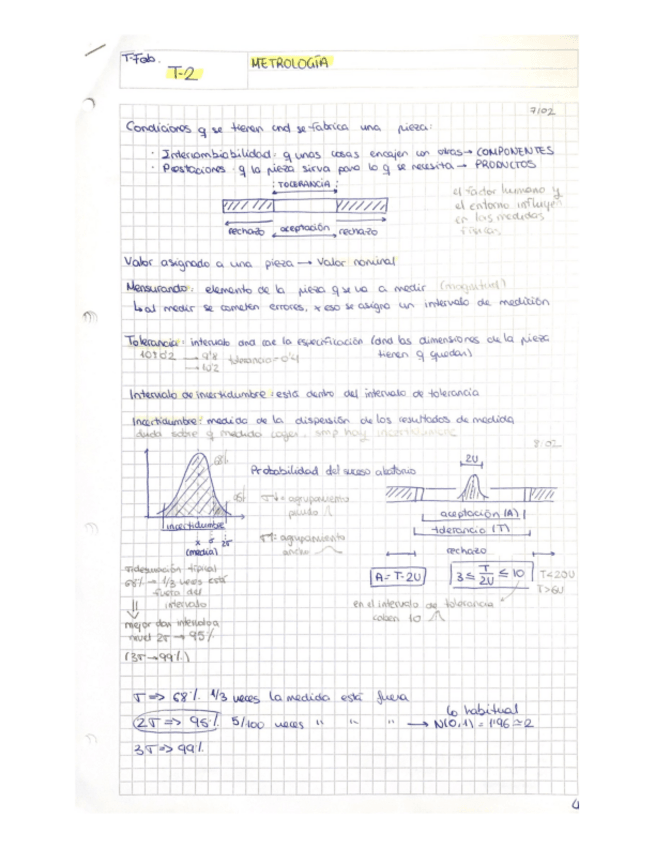 T-Fab.
T-2
METROLOGÍA
7/02
Condiciones q se tienen cnd se fabrica una pieza:
· Intercambiabilidad: q unas cosas encajen con otras → COMPONENTES
· Prestaciones: q la pieza sirva para lo q se necesita → PRODUCTOS
TOLERANCIA
rechazo aceptación rechazo
el factor humano y
el entorno influyen
en las medidas
físicas
Valor asignado a una pieza → Valor nominal
Mensurando: elemento de la pieza q se va a medir (magnitud)
↳ al medir se cometen errores, x eso se asigna un intervalo de medición
Tolerancia: intervalo dnd cae la especificación (dnd las dimensiones de la pieza
tienen q quedar)
10±0'2 → 9'8
→ 10'2
tolerancia=0'4
Intervalo de incertidumbre: está dentro del intervalo de tolerancia
Incertidumbre: medida de la dispersión de los resultados de medida
duda sobre q medida coger, smp hay incertidumbre
8/02
68%
95%
incertidumbre
x σ 2σ
(media)
Probabilidad del suceso aleatorio
σ↓= agrupamiento
σ↑= agrupamiento
ancho
2U
aceptación (A)
tolerancia (T)
rechazo
A = T-2U
3 ≤ T/2U ≤ 10
T<20U
T>6U
en el intervalo de tolerancia
caben 10
σ desviación típica
68% → 1/3 veces está
fuera del
intervalo
mejor dar intervalo a
nivel 2σ → 95%
(3σ → 99%)
σ ⇒ 68% 1/3 veces la medida está fuera
2σ ⇒ 95% 5/100 veces " " " → N(0,1) = 1'96 ≃ 2
lo habitual
3σ ⇒ 99%